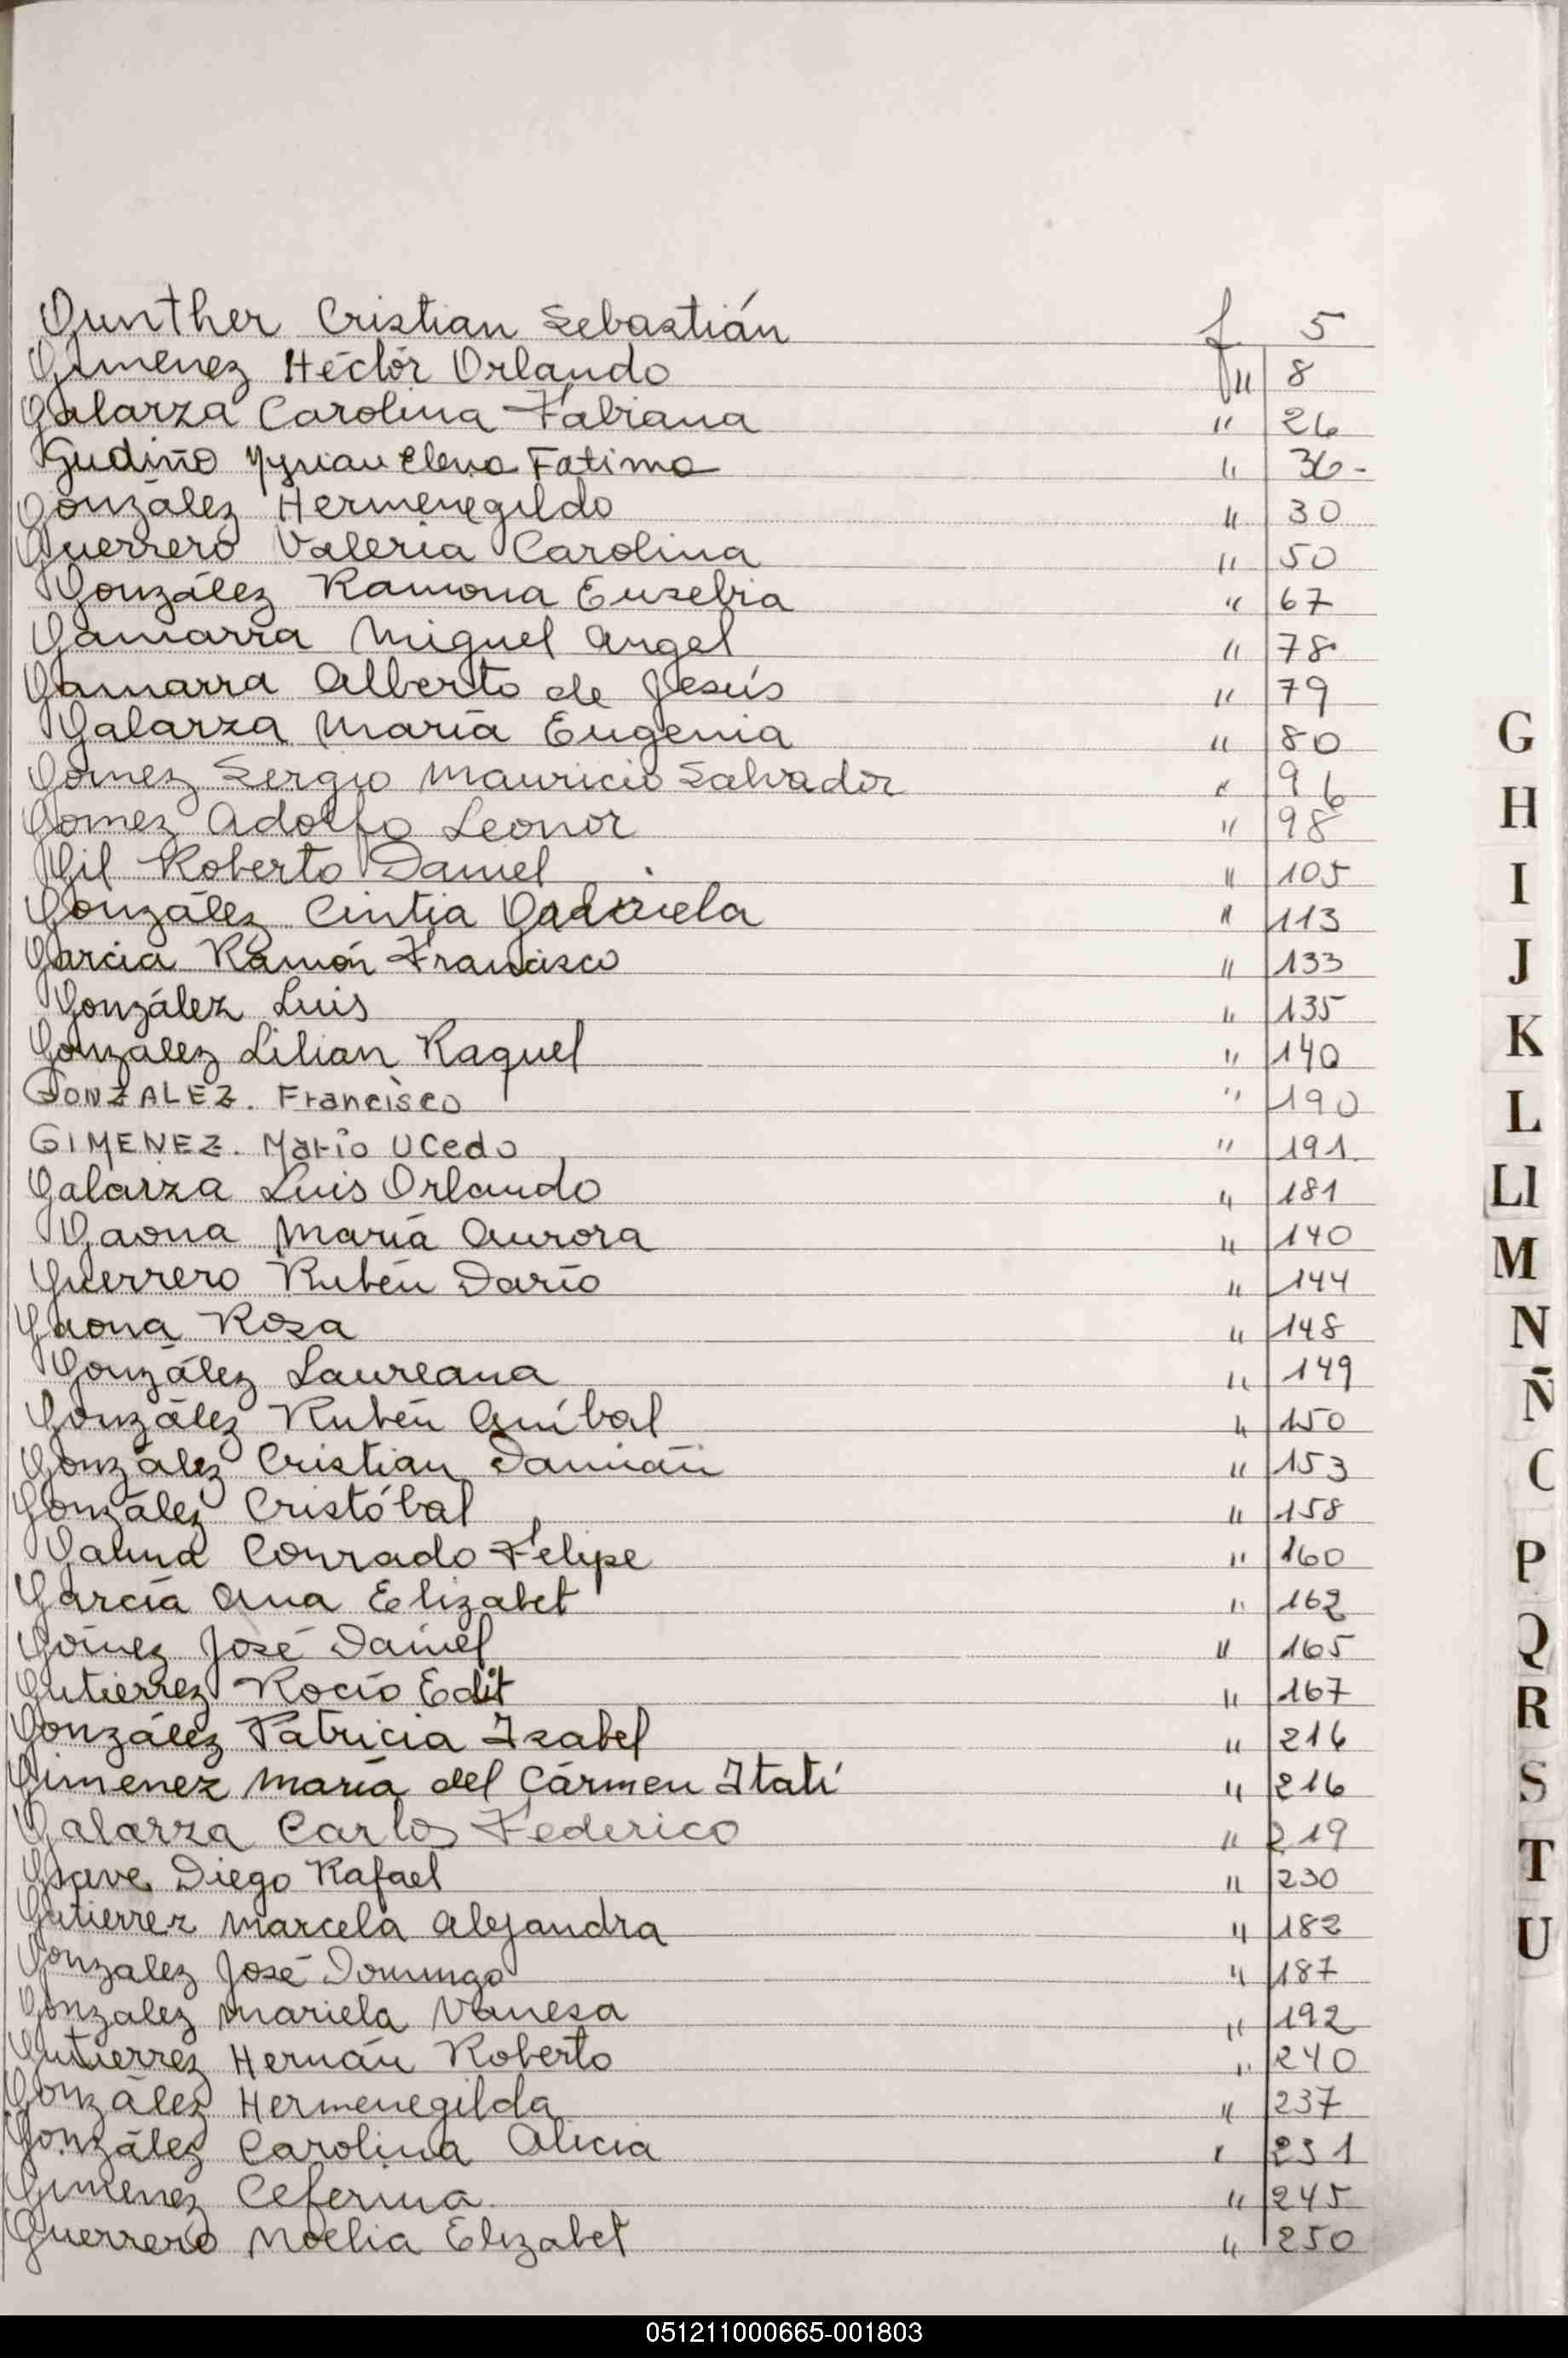 Gunther Cristian Sebastián f 5
Gimenez Héctor Orlando " 8
Galarza Carolina Fabiana " 26
Gudiño Elena Fatima " 36-
González Hermenegildo " 30
Guerrero Valeria Carolina " 50
González Ramona Eusebia " 67
Gamarra Miguel Angel " 78
Gamarra Alberto de Jesús " 79
Galarza María Eugenia " 80
Gómez Sergio Mauricio Salvador " 96
Gomez Adolfo Leonor " 98
Gil Roberto Daniel " 105
González Cintia Gabriela " 113
Garcia Ramón Francisco " 133
González Luis " 135
González Lilian Raquel " 140
GONZALEZ. Francisco " 190
GIMENEZ. Mario Ucedo " 191
Galarza Luis Orlando " 181
Gaona María Aurora " 140
Guerrero Rubén Darío " 144
Gaona Rosa " 148
González Laureana " 149
González Rubén Aníbal " 150
González Cristian Damián " 153
González Cristóbal " 158
Conrado Felipe " 160
García Ana Elizabet " 162
Gómez José Daniel " 165
Gutierrez Rocío Edit " 167
González Patricia Isabel " 216
Gimenez María del Cármen Itatí " 216
Galarza Carlos Federico " 219
Diego Rafael " 230
Gutierrez Marcela Alejandra " 182
Gonzalez José Domingo " 187
Gonzalez Mariela Vanesa " 192
Gutierrez Hernán Roberto " 240
González Hermenegilda " 237
González Carolina Alicia " 231
Gimenez Ceferina " 245
Guerrero Noelia Elizabet " 250
G
H
I
J
K
L
Ll
M
N
Ñ
O
P
Q
R
S
T
U
051211000665-001803